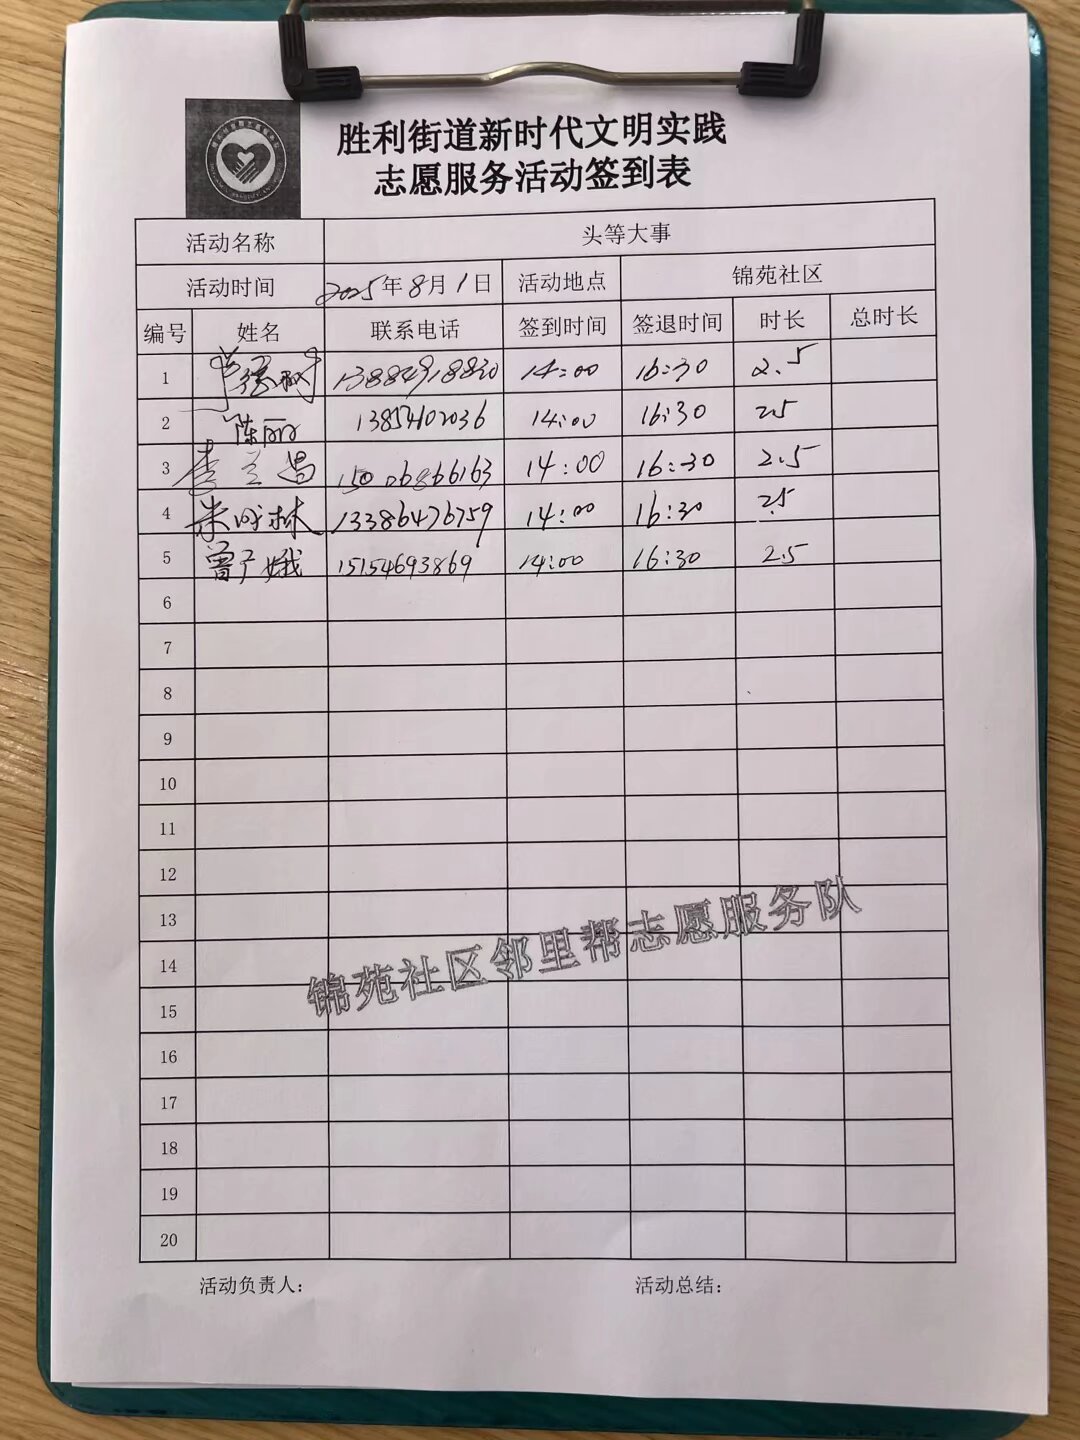 胜利街道新时代文明实践
志愿服务活动签到表
活动名称 头等大事
活动时间 2025年8月1日 活动地点 锦苑社区
编号 姓名 联系电话 签到时间 签退时间 时长 总时长
1 13884918830 14:00 16:30 2.5
2 陈丽 13854102036 14:00 16:30 2.5
3 李兰昌 15006866163 14:00 16:30 2.5
4 林 13386476759 14:00 16:30 2.5
5 曾广娥 15154693869 14:00 16:30 2.5
6
7
8
9
10
11
12
13
14
15
16
17
18
19
20
锦苑社区邻里帮志愿服务队
活动负责人: 活动总结: